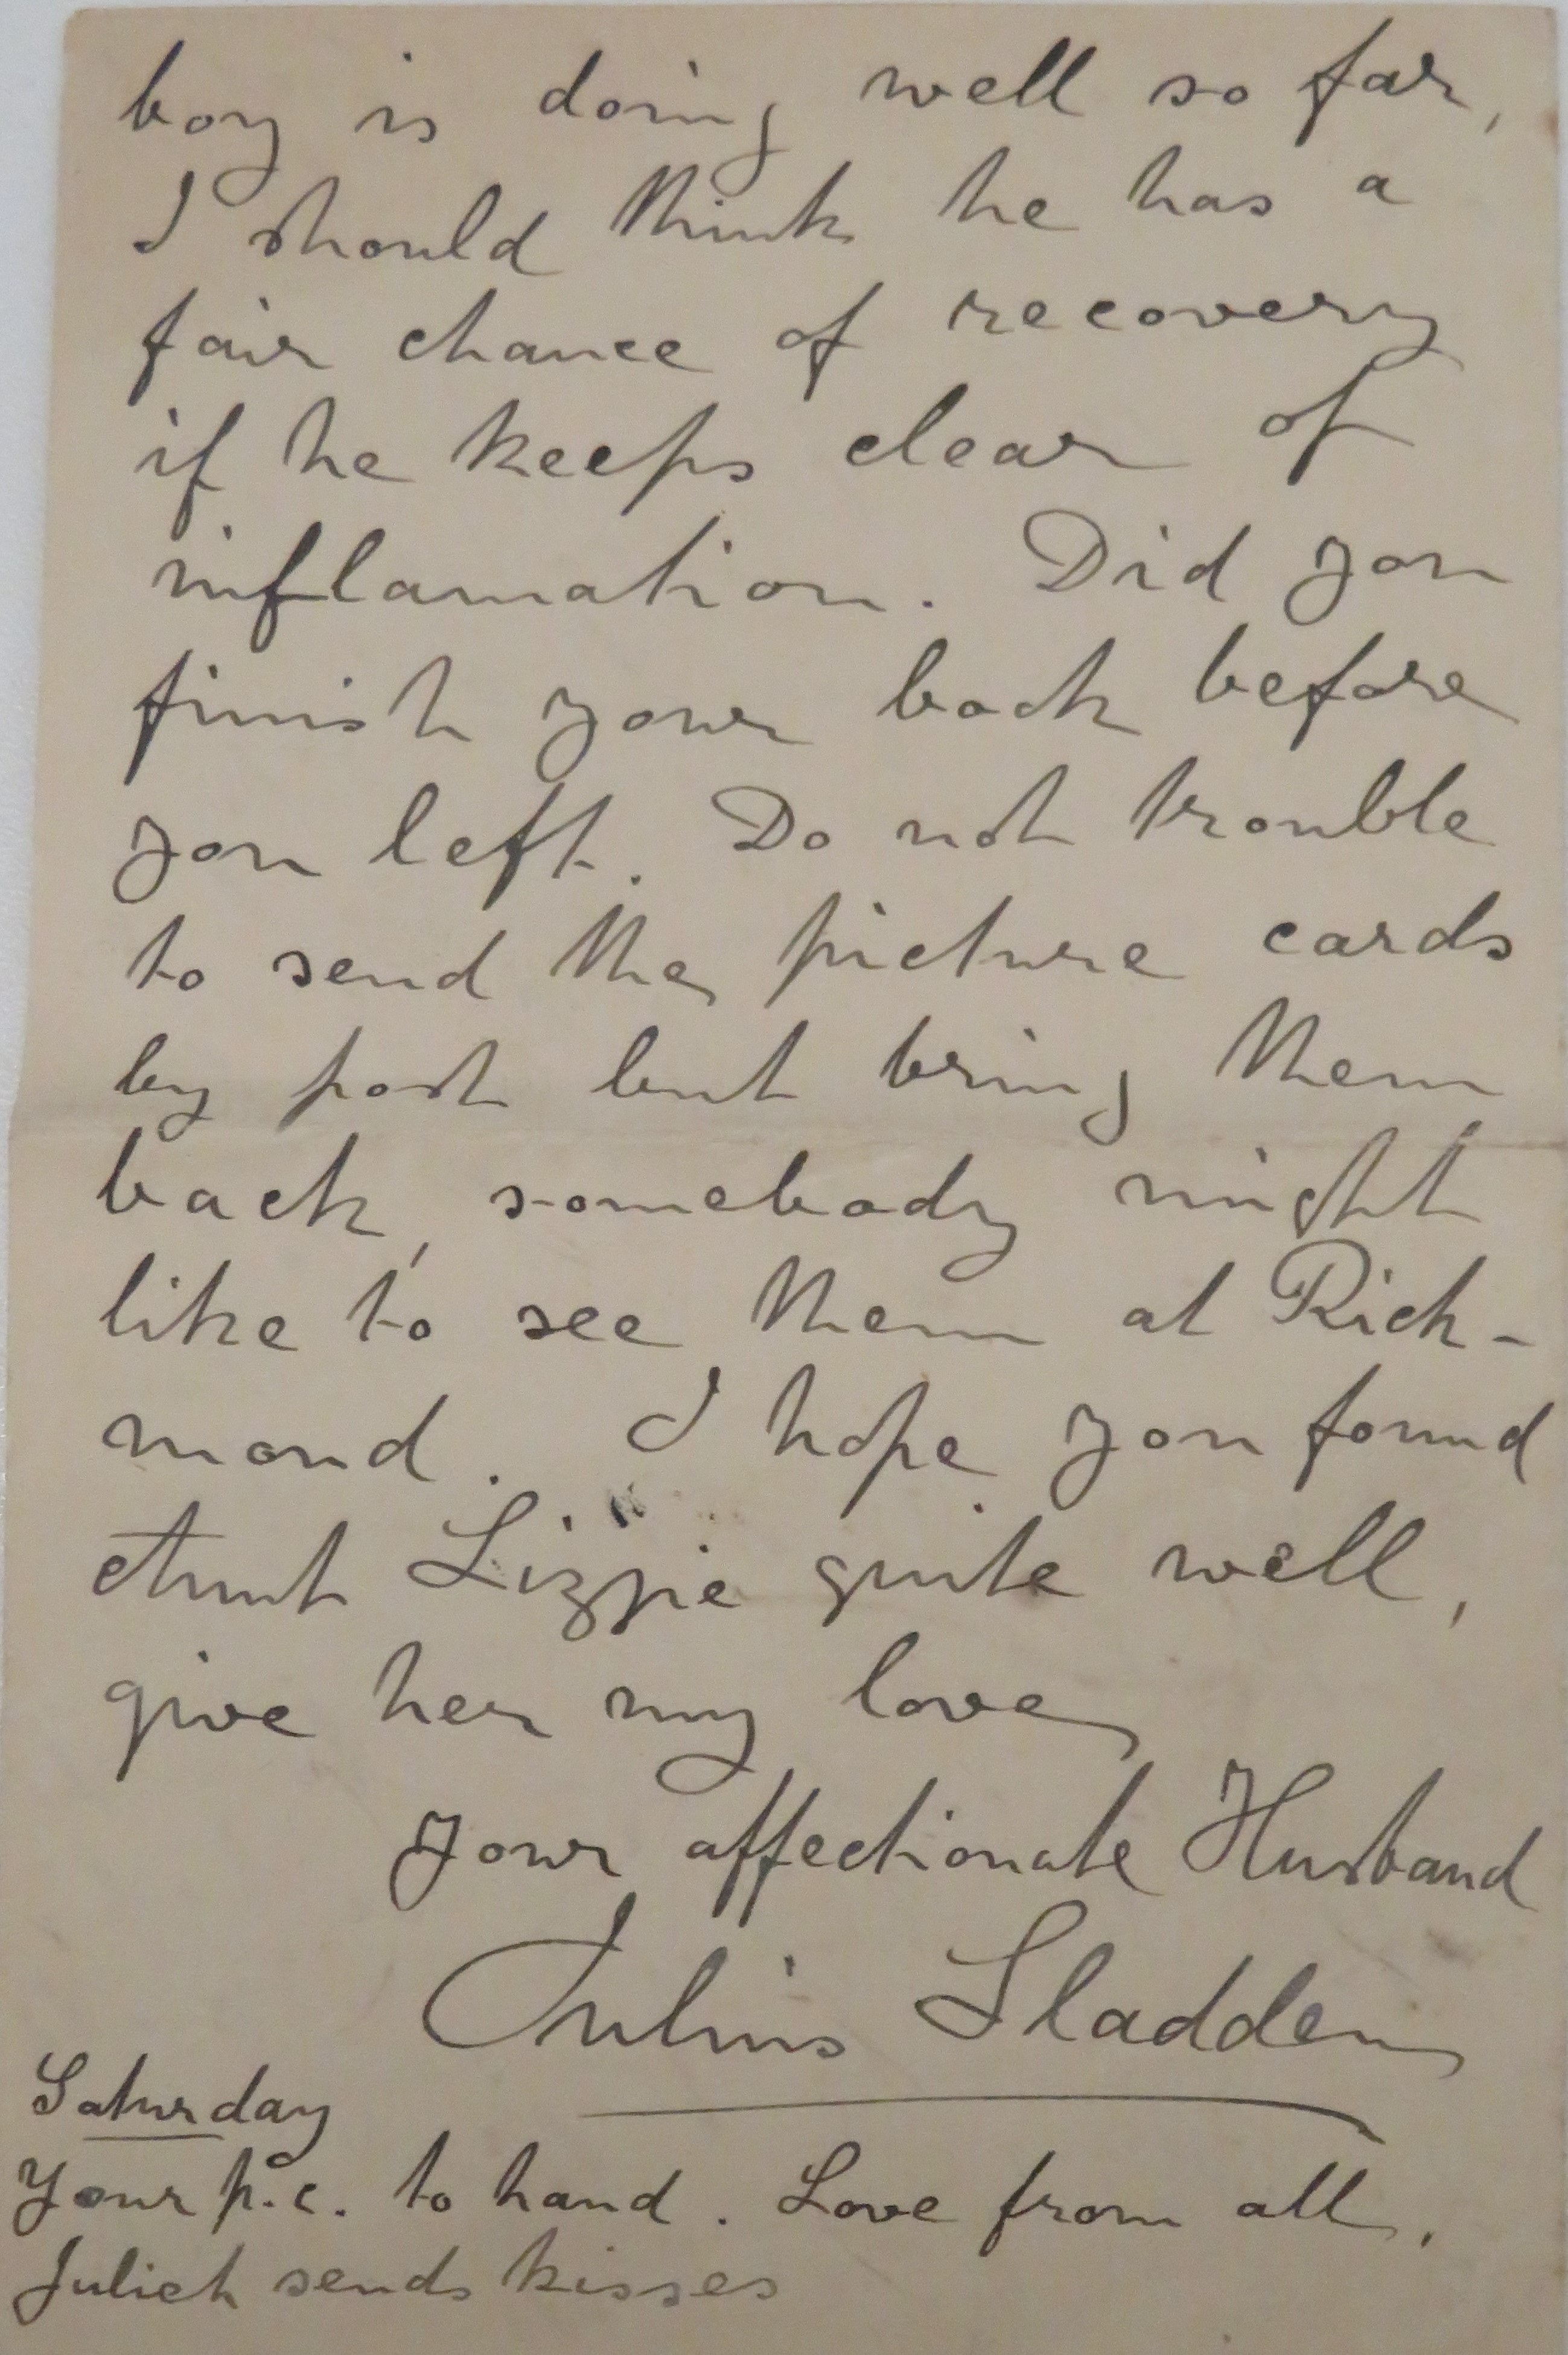 boy is doing well so far,
I should think he has a
fair chance of recovery
if he keeps clear of
inflamation. Did you
finish your book before
you left. Do not trouble
to send the picture cards
by post but bring them
back, somebody might
like to see them at Rich-
mond. I hope you found
Aunt Lizzie quite well,
give her my love
Your affectionate Husband
Julius Sladden
Saturday
Your p.c. to hand. Love from all.
Juliet sends kisses